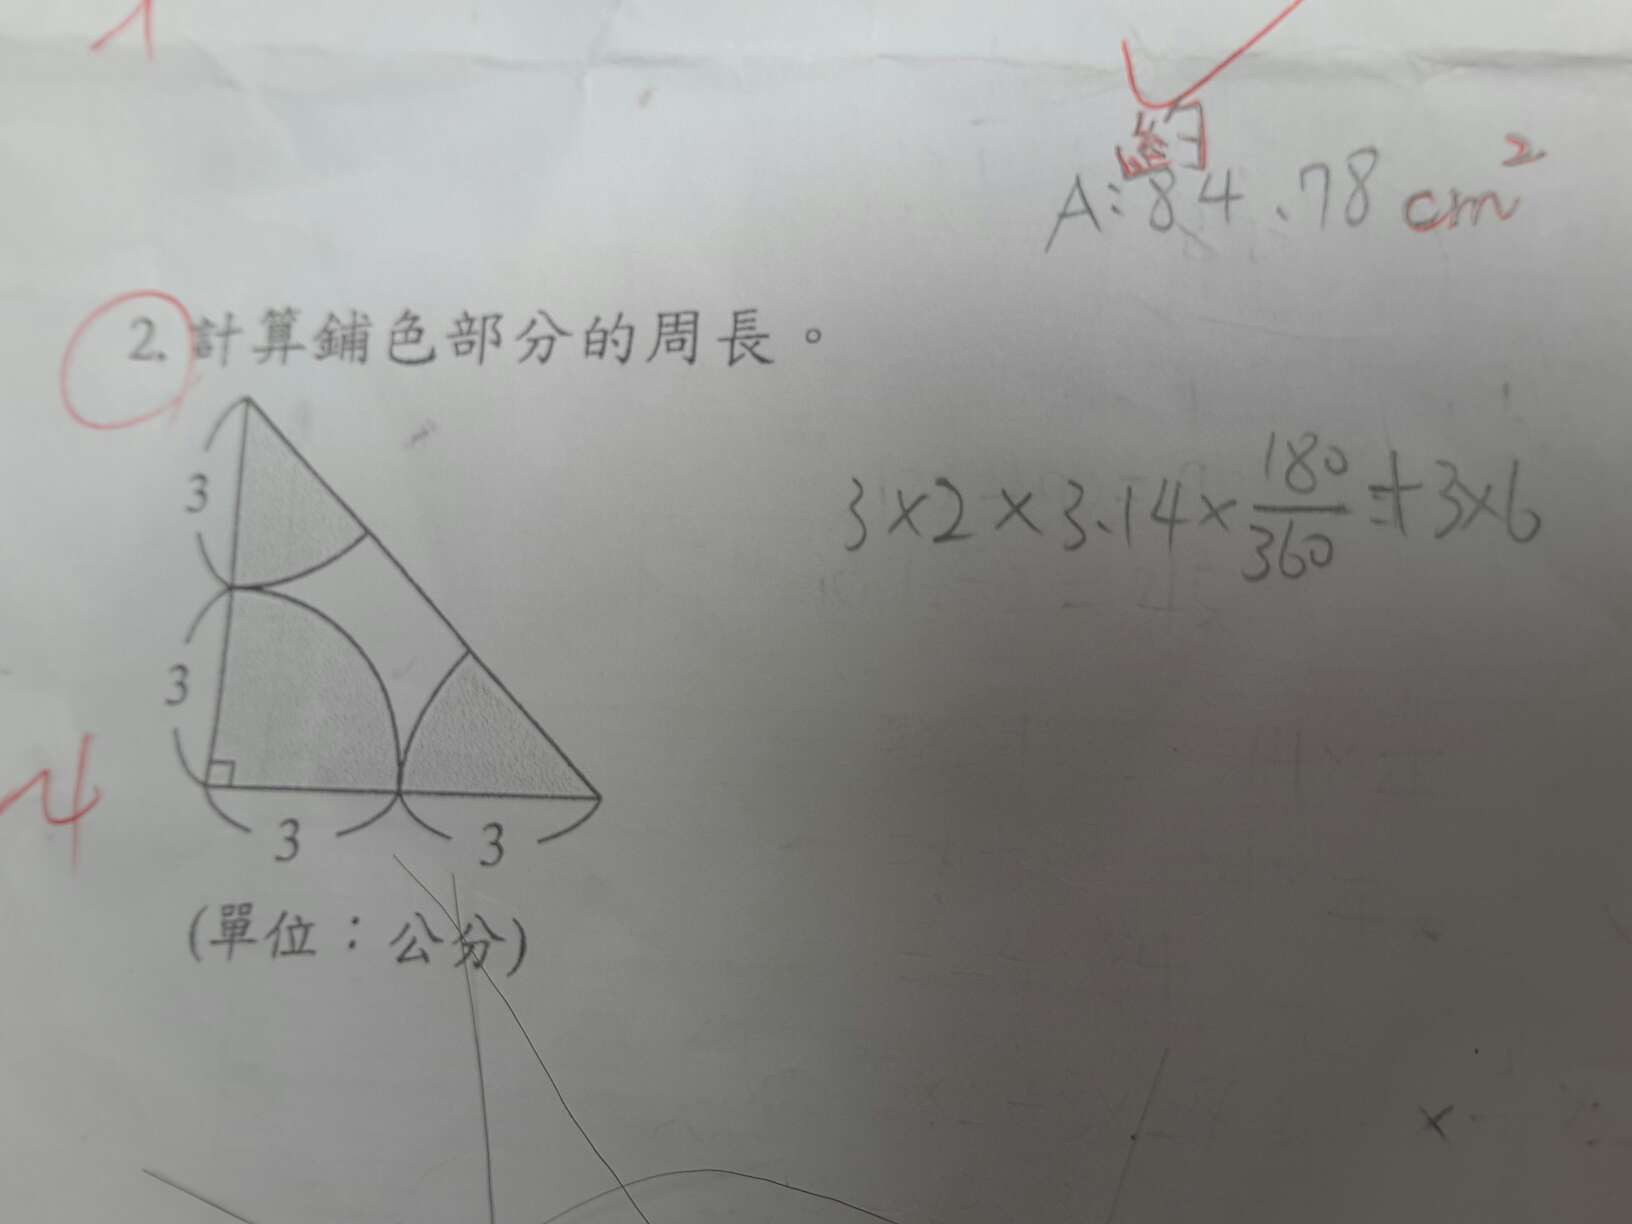 約
A:84.78 cm²
2. 計算鋪色部分的周長。
3×2×3.14×180/360+3×6
3
3
-4
3
3
(單位：公分)